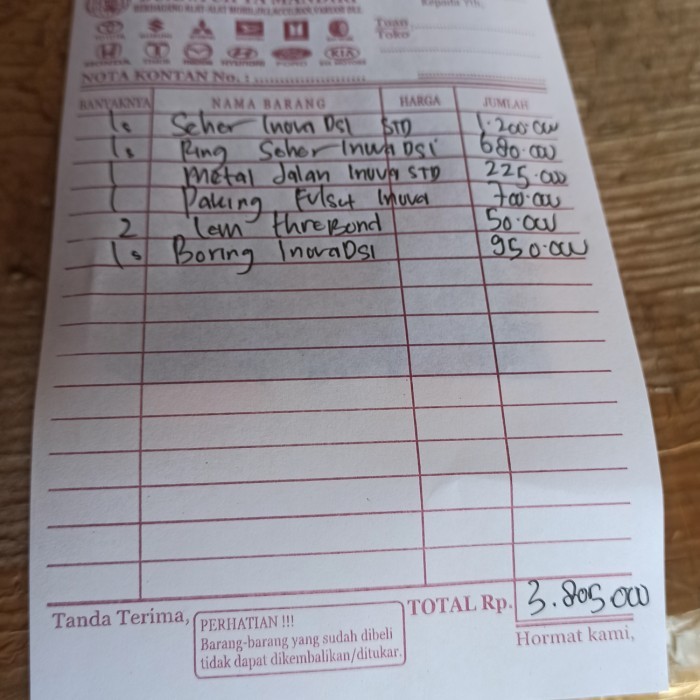 Kepada Yth.
Tuan
Toko
HONDA
HYUNDAI
FORD
KIA
NOTA KONTAN No. :
BANYAKNYA NAMA BARANG HARGA JUMLAH
1s Seher Inova DSI STD 1.200.000
1s Ring Seher Inova DSI 680.000
1 Metal Jalan Inova STD 225.000
1 Paking Fulset Inova 700.000
2 lem threBond 50.000
1s Boring Inova DSI 950.000
TOTAL Rp. 3.805.000
Tanda Terima,
PERHATIAN !!!
Barang-barang yang sudah dibeli
tidak dapat dikembalikan/ditukar.
Hormat kami,